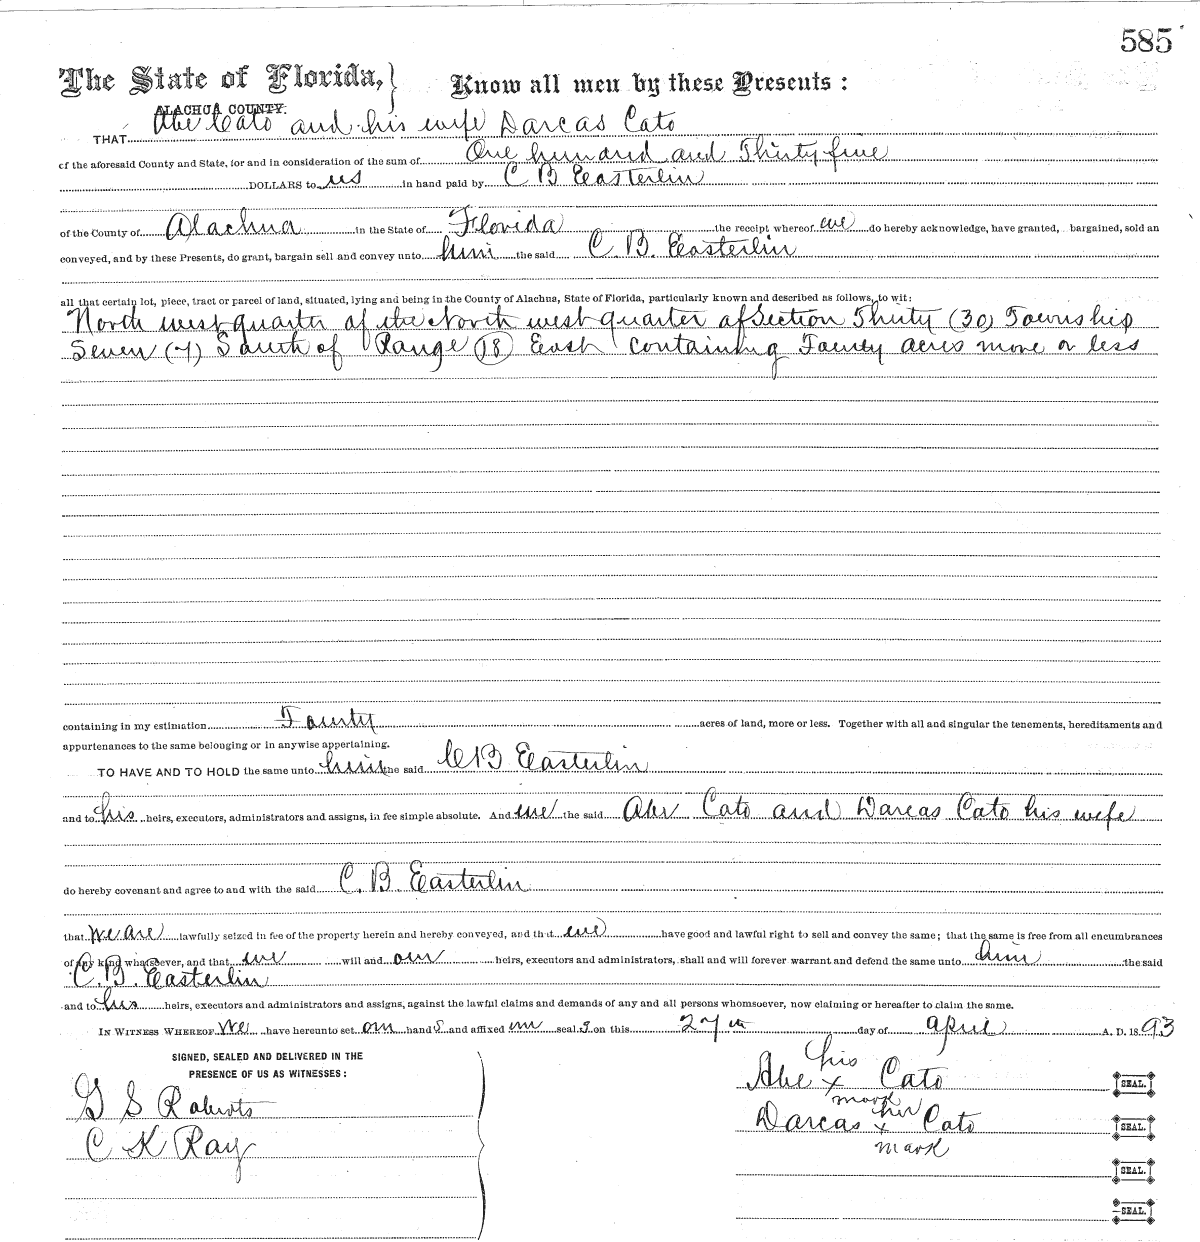 585
The State of Florida, } Know all men by these Presents :
ALACHUA COUNTY.
THAT Abe Cato and his wife Darcas Cato
of the aforesaid County and State, for and in consideration of the sum of One hundred and Thirty five
DOLLARS to us in hand paid by C B Easterlin
of the County of Alachua in the State of Florida the receipt whereof we do hereby acknowledge, have granted, bargained, sold an
conveyed, and by these Presents, do grant, bargain sell and convey unto him the said C. B. Easterlin
all that certain lot, piece, tract or parcel of land, situated, lying and being in the County of Alachua, State of Florida, particularly known and described as follows, to wit:
North west quarter of the North west quarter of Section Thirty (30) Township
Seven (7) South of Range (18) East containing Fourty acres more or less
containing in my estimation Fourty acres of land, more or less. Together with all and singular the tenements, hereditaments and
appurtenances to the same belonging or in anywise appertaining.
TO HAVE AND TO HOLD the same unto him the said C B Easterlin
and to his heirs, executors, administrators and assigns, in fee simple absolute. And we the said Abe Cato and Darcas Cato his wife
do hereby covenant and agree to and with the said C. B. Easterlin
that we are lawfully seized in fee of the property herein and hereby conveyed, and that we have good and lawful right to sell and convey the same; that the same is free from all encumbrances
of any kind whatsoever, and that we will and our heirs, executors and administrators, shall and will forever warrant and defend the same unto him the said
C. B. Easterlin
and to his heirs, executors and administrators and assigns, against the lawful claims and demands of any and all persons whomsoever, now claiming or hereafter to claim the same.
IN WITNESS WHEREOF We have hereunto set our hand s and affixed our seal s on this 27th day of April A. D. 18 93
SIGNED, SEALED AND DELIVERED IN THE
PRESENCE OF US AS WITNESSES :
G S Roberts
C K Ray
his
Abe x Cato SEAL.
mark
her
Darcas x Cato SEAL.
mark
SEAL.
SEAL.